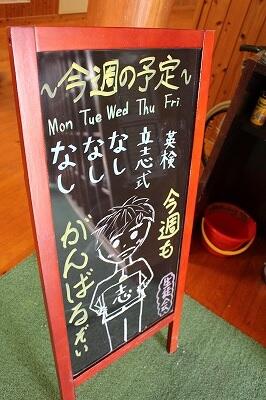 ～今週の予定～
Mon Tue Wed Thu Fri
なし なし なし 立志式 英検
今週も
がんばるぞい
志